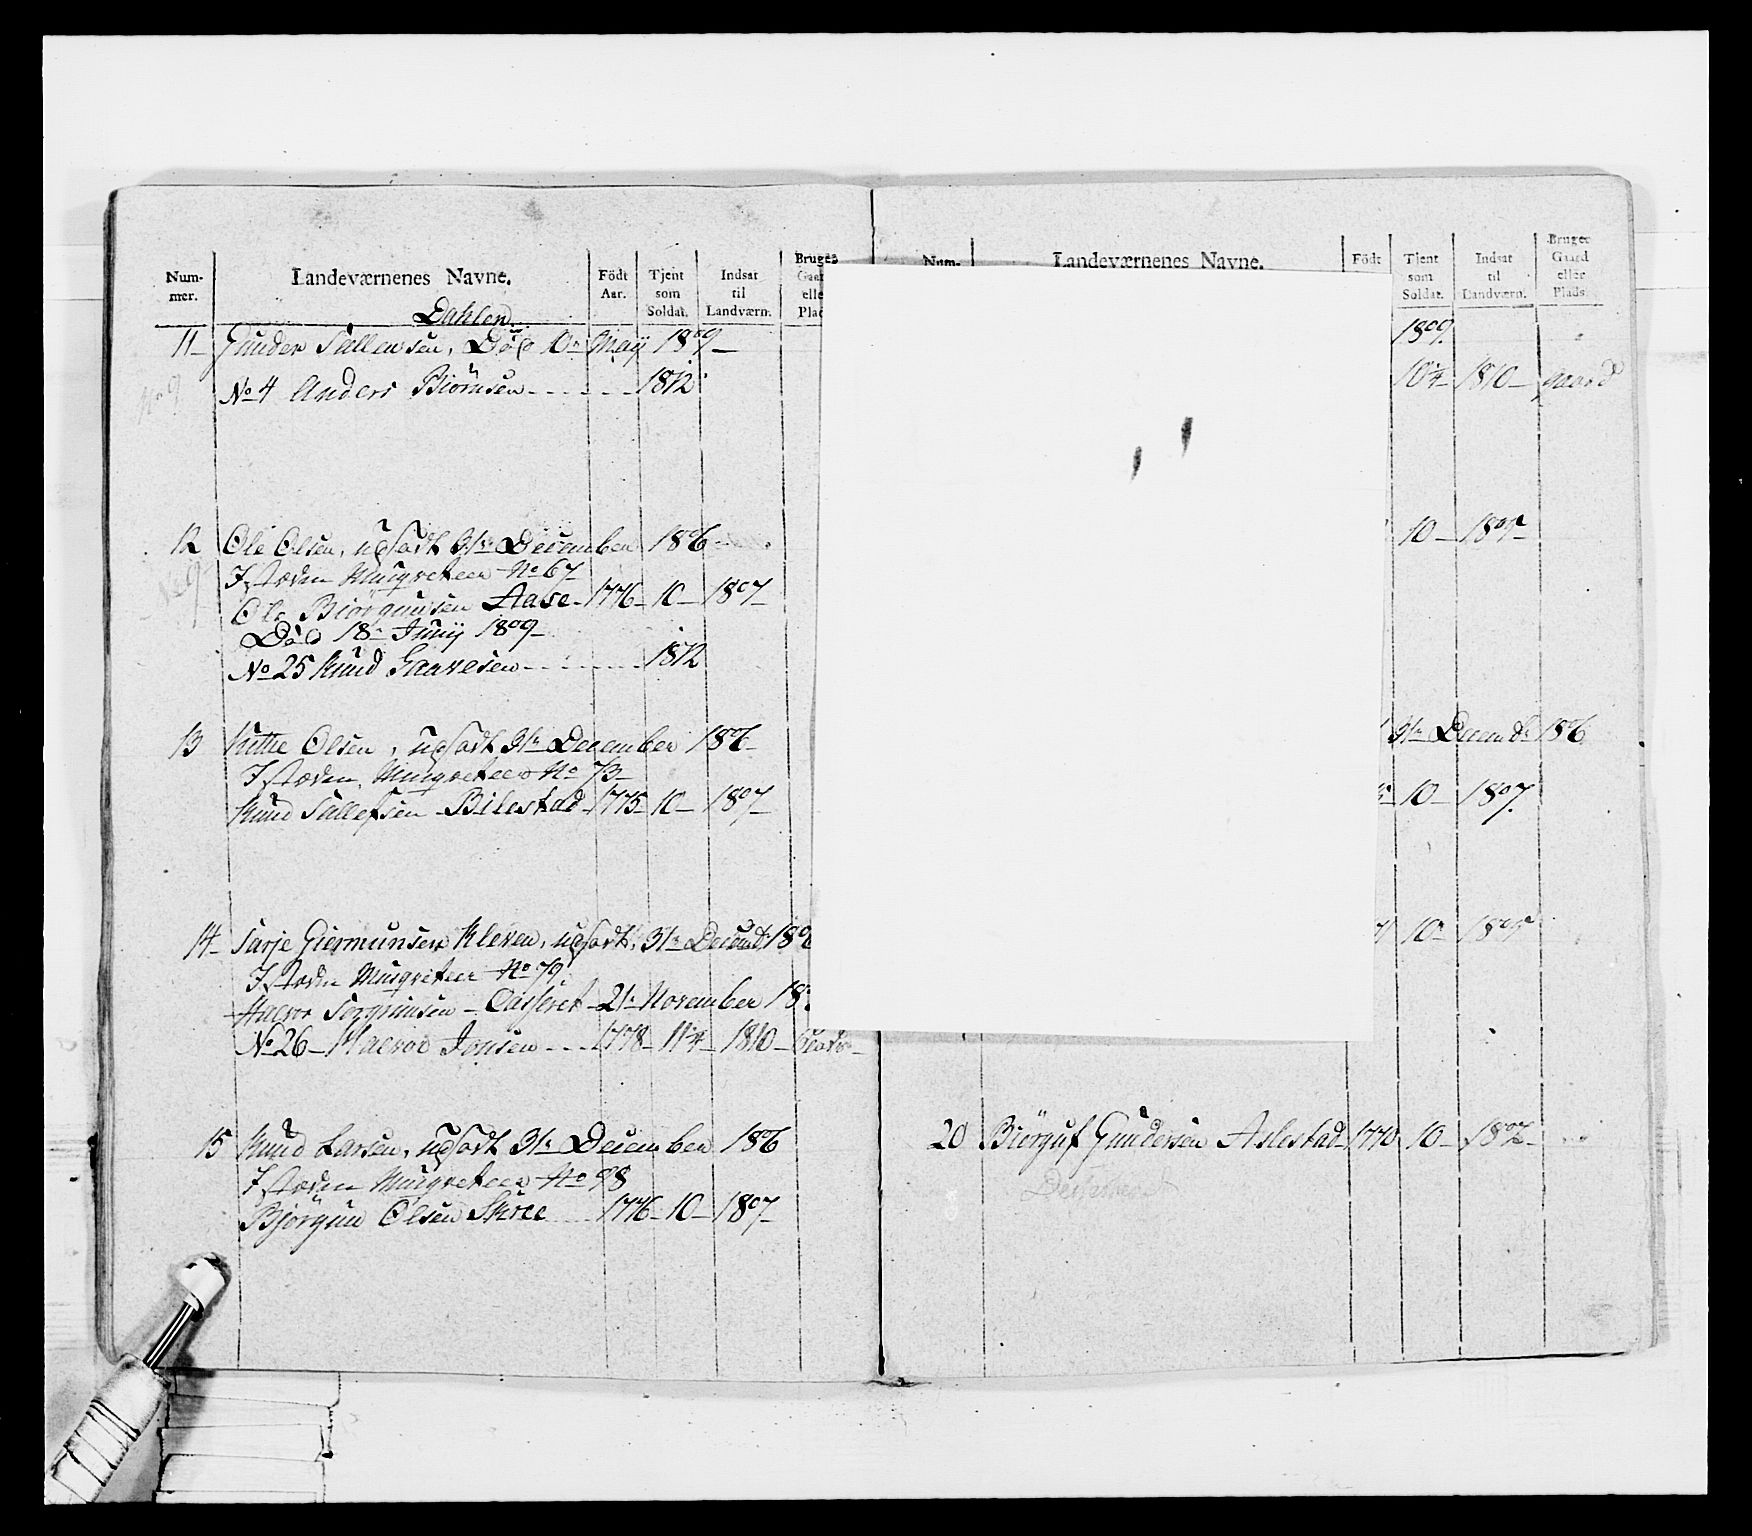 Num-
mer.
Landeværnenes Navne.
Födt
Aar.
Tjent
som
Soldat.
Indsat
til
Landværn.
Bruger
Gaard
elle
Plad
Dahlen
11 Gunder Sallensen, Död 10de Maij 1809
No 9
No 4 Anders Biörnsen 1812
12 Ole Olsen, udsadt 31te December 1806
No 9
I stæden Musqveteer No 67
Ole Biörgunsen Aase 1776 10 1807
Död 18de Junij 1809
No 25 Knud Gaaresen 1812
13 Kittie Olsen, udsadt 31te December 1806
I stæden Musqveteer No 73
Knud Sallefsen Bilestad 1775 10 1807
14 Tarje Giermunsen Kleven, udsadt 31te Decemb: 180
I stæden Musqveteer No 79
Halvor Torgrimsen Casseret 21de November 18
No 26 Halvor Jonsen 1778 11 1/4 1810
15 Knud Larsen, udsadt 31te December 1806
I stæden Musqveteer No 98
Bjørgun Olsen Skree 1776 10 1807
Num-
Landeværnenes Navne.
Födt
Tjent
som
Soldat.
Indsat
til
Landværn.
Bruger
Gaard
eller
Plads.
1809
10 1/4 1810 gaard
10 1805
31te Decemb: 1806
10 1807
10 1805
20 Biörguf Gundersen Aslestad 1770 10 1802